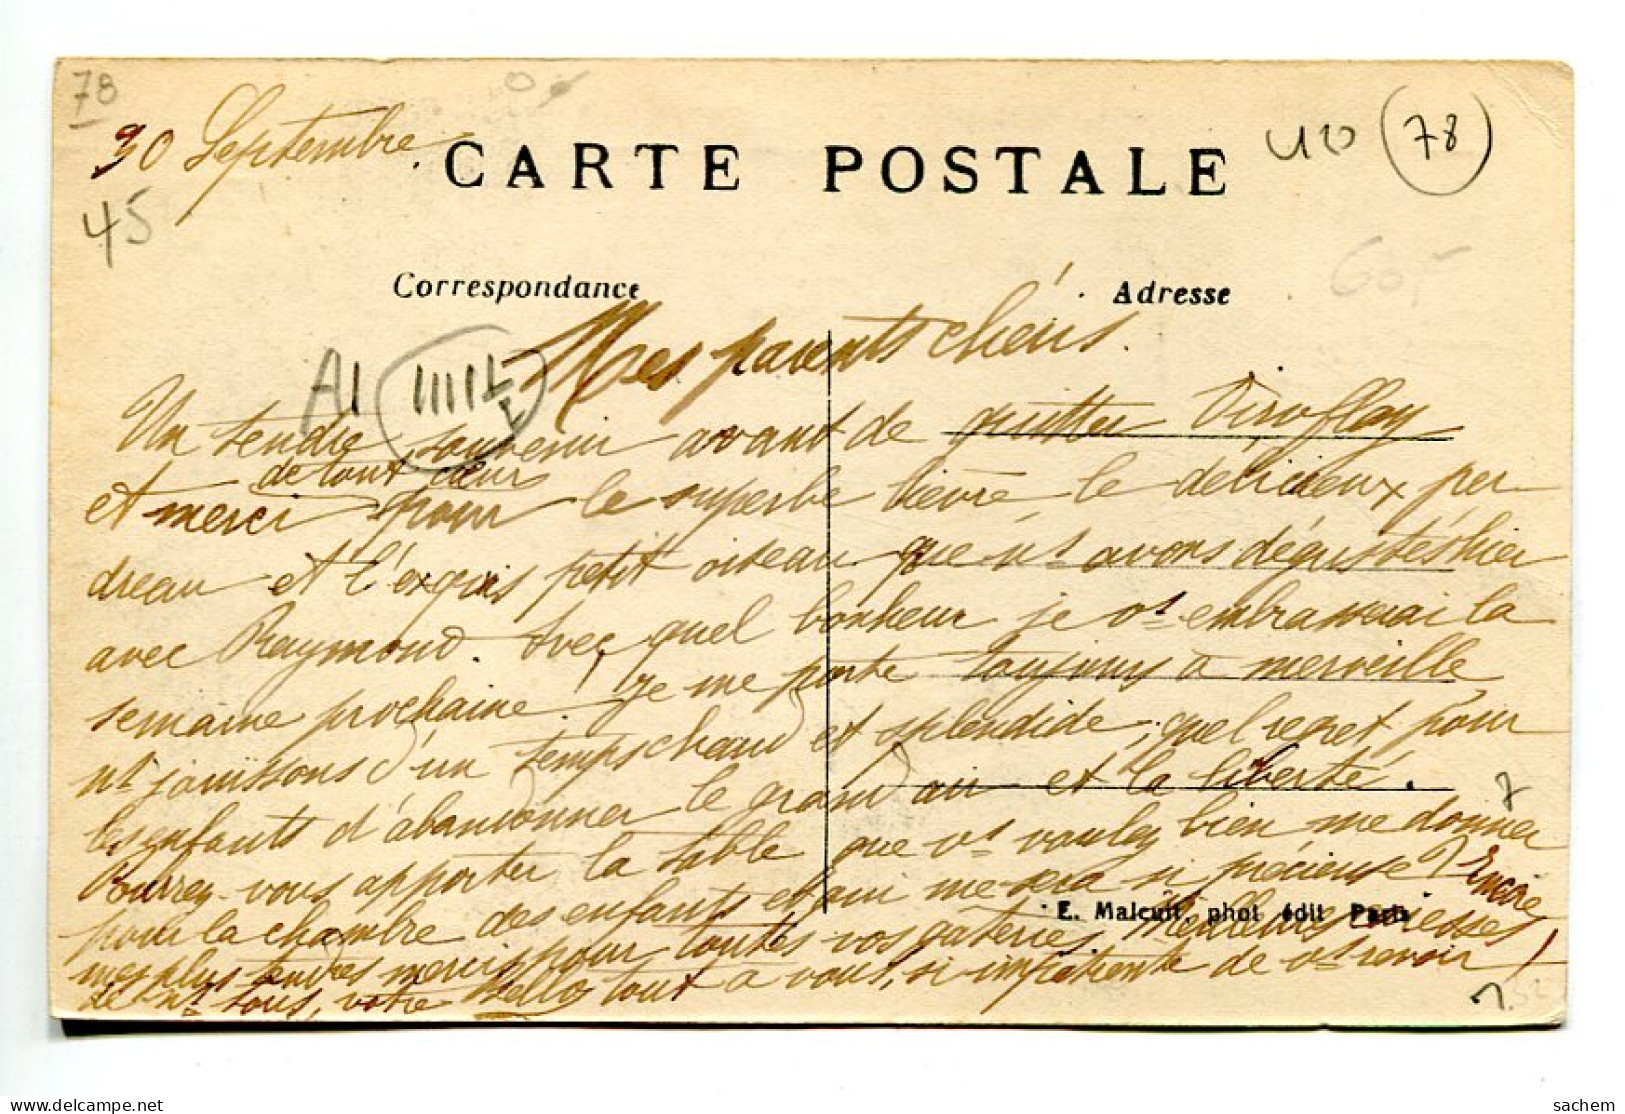 78
30 Septembre.
CARTE POSTALE
(78)
45
Correspondance
Adresse
Mes parents chéris.
Un tendre souvenir avant de quitter Viroflay
de tout cœur
et merci pour le superbe lièvre le délicieux per
dreau et l'exquis petit oiseau que ns avons dégustés hier
avec Raymond. Avec quel bonheur je vs embrasserai la
semaine prochaine! Je me porte toujours à merveille,
ns jouissons d'un temps chaud et splendide, quel regret pour
les enfants d'abandonner le grand air et la liberté.
Pourrez-vous apporter la table que vs voulez bien me donner
pour la chambre des enfants et qui me sera si précieuse? Encore
mes plus tendres mercis pour toutes vos gâteries, Meilleures caresses
de ns tous, votre Nello tout à vous, si impatiente de vs revoir!
E. Malcuit, phot édit Paris
delcampe.net
sachem